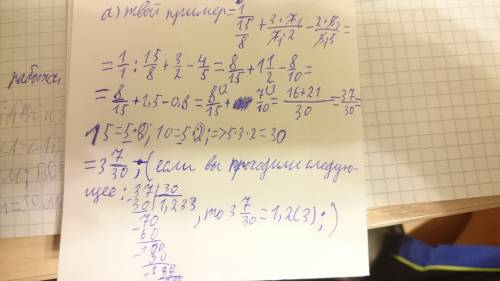 а) твой пример = 1/(15/8) + 3·7₁/7₁·2 − 2·8₂/8₁5 =
= 1/1 : 15/8 + 3/2 − 4/5 = 8/15 + 1 1/2 − 8/10 =
= 8/15 + 1,5 − 0,8 = 8/15 + 7/10 = 16+21/30 = 37/30 =
15 = 5·3, 10 = 5·2, => 5·3·2 = 30
= 3 7/30 ; (если вы проходили следую-
щее: 37 | 30
30 | 1,233 , то 3 7/30 = 1,2(3) ; )
70
60
100
90
100
работы